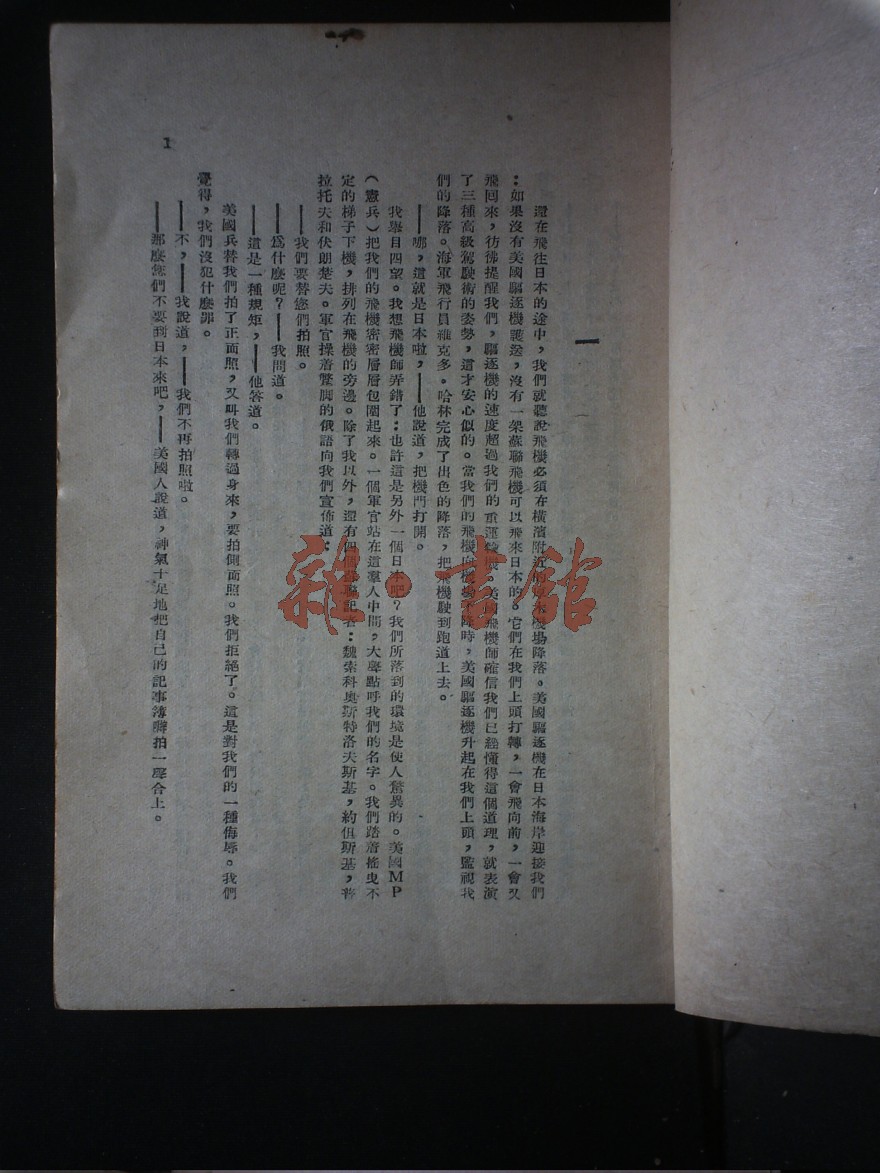 一
還在飛往日本的途中，我們就聽說飛機必須在橫濱附近的 機場降落。美國驅逐機在日本海岸迎接我們
：如果沒有美國驅逐機護送，沒有一架蘇聯飛機可以飛來日本的。它們在我們上頭打轉，一會飛向前，一會又
飛回來，彷彿提醒我們，驅逐機的速度超過我們的重運輸機。美國飛機師確信我們已經懂得這個道理，就表演
了三種高級駕駛術的姿勢，這才安心似的。當我們的飛機向機場下降時，美國驅逐機升起在我們上頭，監視我
們的降落。海軍飛行員維克多。哈林完成了出色的降落，把飛機駛到跑道上去。
——哪，這就是日本啦，——他說道，把機門打開。
我舉目四望。我想飛機師弄錯了：也許這是另外一個日本吧？我們所落到的環境是使人驚異的。美國MP
（憲兵）把我們的飛機密密層層包圍起來。一個軍官站在這羣人中間，大聲點呼我們的名字。我們踏着搖曳不
定的梯子下機，排列在飛機的旁邊。除了我以外，還有四個蘇聯記者：魏索科奧斯特洛夫斯基，約俱斯基，
拉托夫和伏朗楚夫。軍官操着蹩脚的俄語向我們宣佈道：
——我們要替您們拍照。
——爲什麼呢？——我問道。
——這是一種規矩，——他答道。
美國兵替我們拍了正面照，又叫我們轉過身來，要拍側面照。我們拒絕了。這是對我們的一種侮辱。我們
覺得，我們沒犯什麼罪。
——不，——我說道，——我們不再拍照啦。
——那麼您們不要到日本來吧，——美國人說道，神氣十足地把自己的記事簿 拍一聲合上。
1
雜·書館